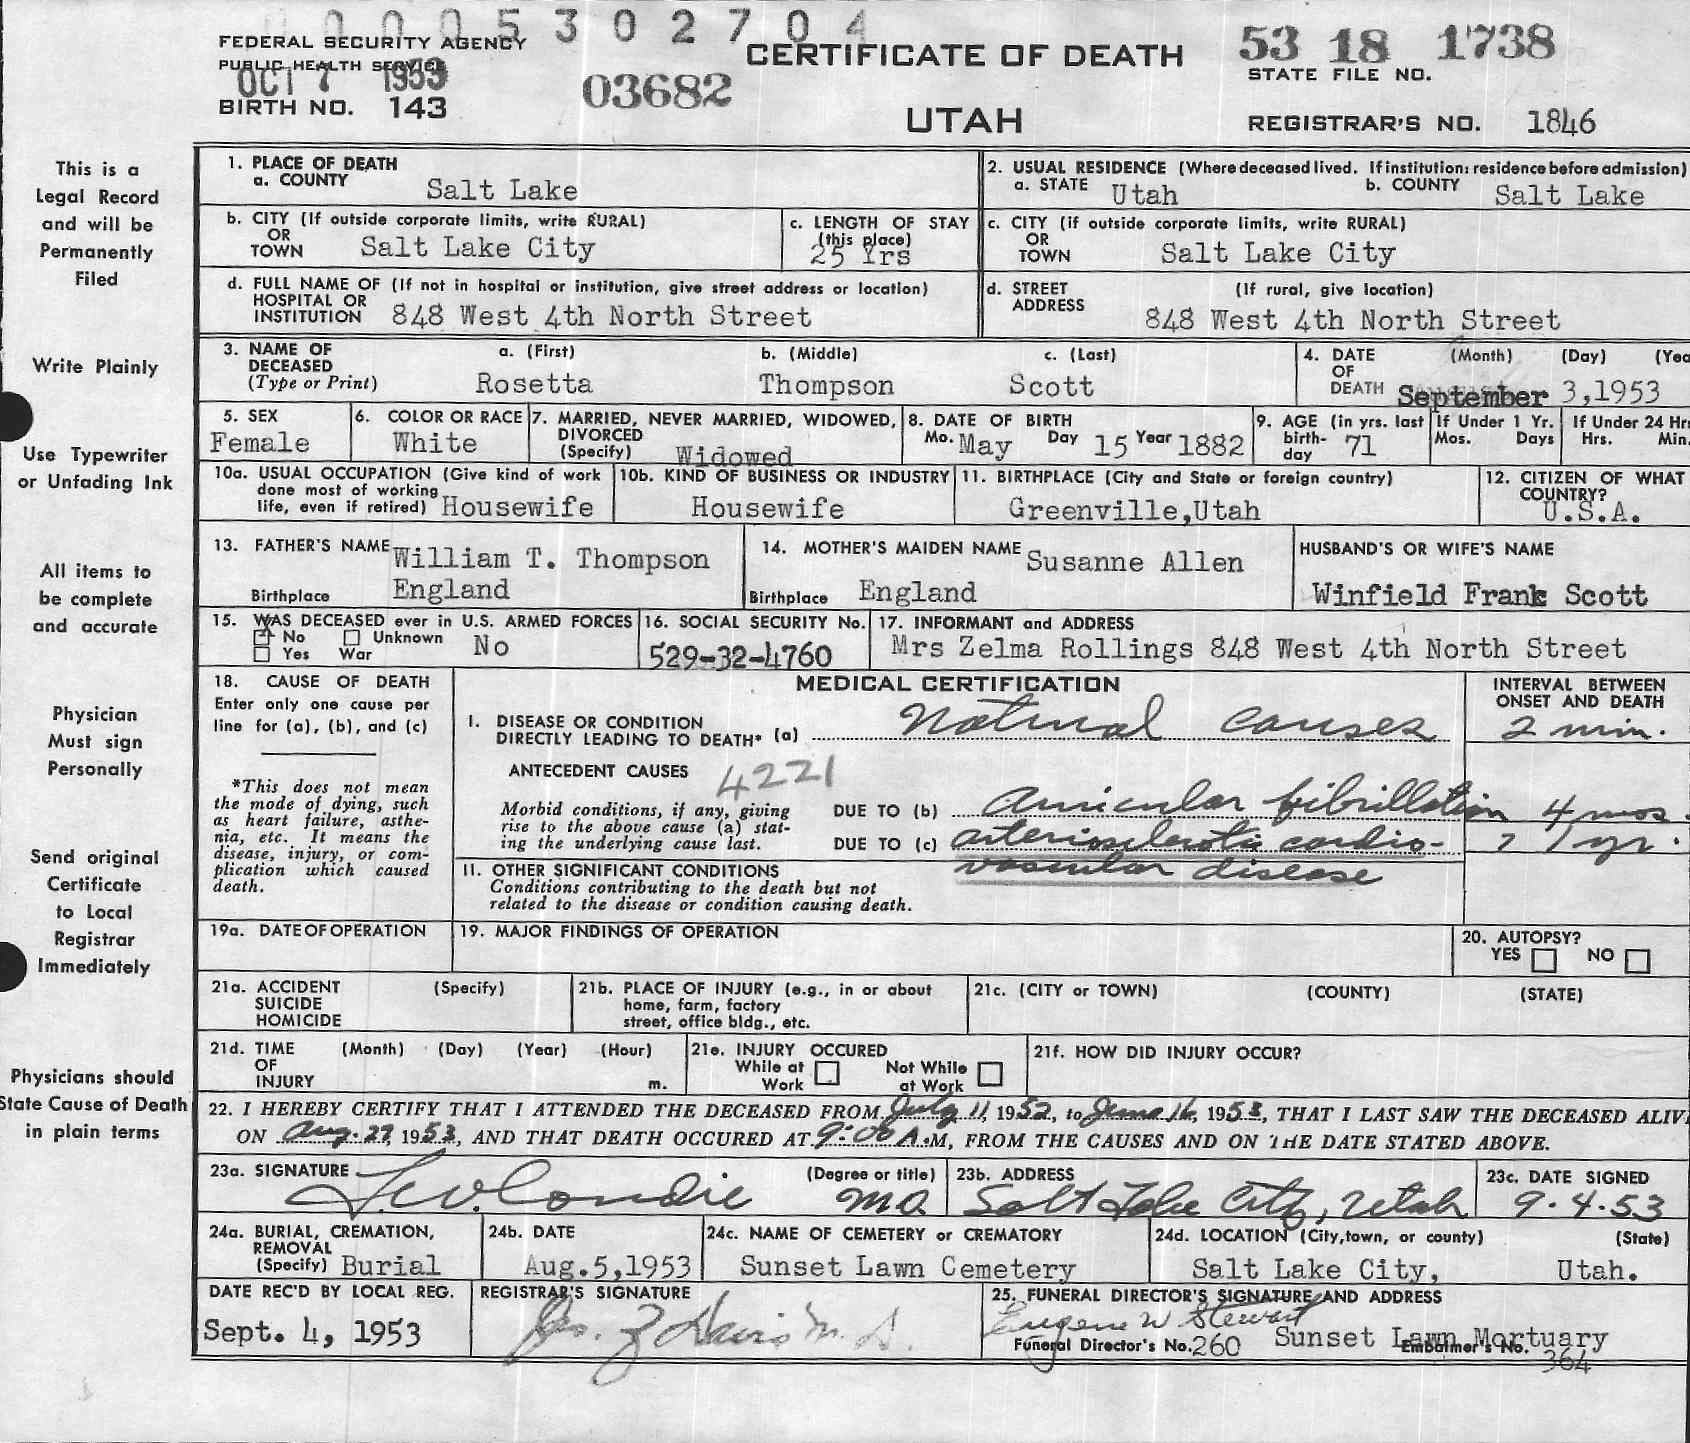 0005302704
FEDERAL SECURITY AGENCY
PUBLIC HEALTH SERVICE
OCT 7 1953
BIRTH NO. 143
03682
CERTIFICATE OF DEATH
UTAH
53 18 1738
STATE FILE NO.
REGISTRAR'S NO. 1846
This is a
Legal Record
and will be
Permanently
Filed
Write Plainly
Use Typewriter
or Unfading Ink
All items to
be complete
and accurate
Physician
Must sign
Personally
Send original
Certificate
to Local
Registrar
Immediately
Physicians should
State Cause of Death
in plain terms
1. PLACE OF DEATH
a. COUNTY Salt Lake
2. USUAL RESIDENCE (Where deceased lived. If institution: residence before admission)
a. STATE Utah b. COUNTY Salt Lake
b. CITY (If outside corporate limits, write RURAL)
OR
TOWN Salt Lake City
c. LENGTH OF STAY
(this place)
25 Yrs
c. CITY (if outside corporate limits, write RURAL)
OR
TOWN Salt Lake City
d. FULL NAME OF (If not in hospital or institution, give street address or location)
HOSPITAL OR
INSTITUTION 848 West 4th North Street
d. STREET (If rural, give location)
ADDRESS
848 West 4th North Street
3. NAME OF DECEASED
(Type or Print)
a. (First) b. (Middle) c. (Last)
Rosetta Thompson Scott
4. DATE (Month) (Day) (Yea
OF
DEATH September 3,1953
5. SEX
Female
6. COLOR OR RACE
White
7. MARRIED, NEVER MARRIED, WIDOWED,
DIVORCED
(Specify) Widowed
8. DATE OF BIRTH
Mo. May Day 15 Year 1882
9. AGE (in yrs. last
birth-
day 71
If Under 1 Yr.
Mos. Days
If Under 24 Hr
Hrs. Min.
10a. USUAL OCCUPATION (Give kind of work
done most of working
life, even if retired) Housewife
10b. KIND OF BUSINESS OR INDUSTRY
Housewife
11. BIRTHPLACE (City and State or foreign country)
Greenville,Utah
12. CITIZEN OF WHAT
COUNTRY?
U.S.A.
13. FATHER'S NAME William T. Thompson
Birthplace England
14. MOTHER'S MAIDEN NAME Susanne Allen
Birthplace England
HUSBAND'S OR WIFE'S NAME
Winfield Frank Scott
15. WAS DECEASED ever in U.S. ARMED FORCES
No Unknown No
Yes War
16. SOCIAL SECURITY No.
529-32-4760
17. INFORMANT and ADDRESS
Mrs Zelma Rollings 848 West 4th North Street
18. CAUSE OF DEATH
Enter only one cause per
line for (a), (b), and (c)
*This does not mean
the mode of dying, such
as heart failure, asthe-
nia, etc. It means the
disease, injury, or com-
plication which caused
death.
MEDICAL CERTIFICATION
INTERVAL BETWEEN
ONSET AND DEATH
I. DISEASE OR CONDITION
DIRECTLY LEADING TO DEATH* (a) Natural causes 2 min.
ANTECEDENT CAUSES 4221
Morbid conditions, if any, giving
rise to the above cause (a) stat-
ing the underlying cause last.
DUE TO (b) Auricular fibrillation 4 mos.
DUE TO (c) arteriosclerotic cardio- ? 1 yr.
vascular disease
11. OTHER SIGNIFICANT CONDITIONS
Conditions contributing to the death but not
related to the disease or condition causing death.
19a. DATE OF OPERATION
19. MAJOR FINDINGS OF OPERATION
20. AUTOPSY?
YES NO
21a. ACCIDENT (Specify)
SUICIDE
HOMICIDE
21b. PLACE OF INJURY (e.g., in or about
home, farm, factory
street, office bldg., etc.
21c. (CITY or TOWN) (COUNTY) (STATE)
21d. TIME (Month) (Day) (Year) (Hour)
OF
INJURY m.
21e. INJURY OCCURED
While at Work
Not While at Work
21f. HOW DID INJURY OCCUR?
22. I HEREBY CERTIFY THAT I ATTENDED THE DECEASED FROM July 11, 1952, to 16, 1953, THAT I LAST SAW THE DECEASED ALIV
ON Aug. 27, 1953, AND THAT DEATH OCCURED AT 9:00 A.M, FROM THE CAUSES AND ON THE DATE STATED ABOVE.
23a. SIGNATURE (Degree or title)
Condie M.D.
23b. ADDRESS
Salt Lake City, Utah
23c. DATE SIGNED
9-4-53
24a. BURIAL, CREMATION,
REMOVAL
(Specify) Burial
24b. DATE
Aug.5,1953
24c. NAME OF CEMETERY or CREMATORY
Sunset Lawn Cemetery
24d. LOCATION (City,town, or county) (State)
Salt Lake City, Utah.
DATE REC'D BY LOCAL REG.
Sept. 4, 1953
REGISTRAR'S SIGNATURE
Jos. Z Davis M.D.
25. FUNERAL DIRECTOR'S SIGNATURE AND ADDRESS
Eugene W Stewart
Funeral Director's No. 260 Sunset Lawn Mortuary
Embalmer's No.
364